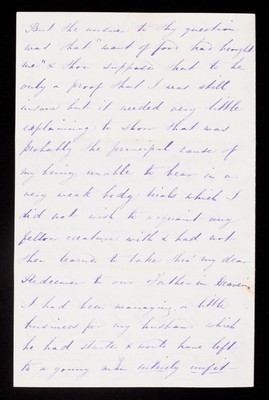 But the answer to thy question
was that "want of food had brought
me" & thou supposed that to be
only a proof that I was still
insane but it needed very little
explaining to show that was
probably the principal cause of
my being unable to bear in a
very weak body trials which I
did not wish to acquaint any
fellow creature with & had not
then learnt to take thro' my dear
Redeemer to our Father in Heaven
I had been managing a little
business for my husband which
he had started & wd have left
to a young man entirely unfit —